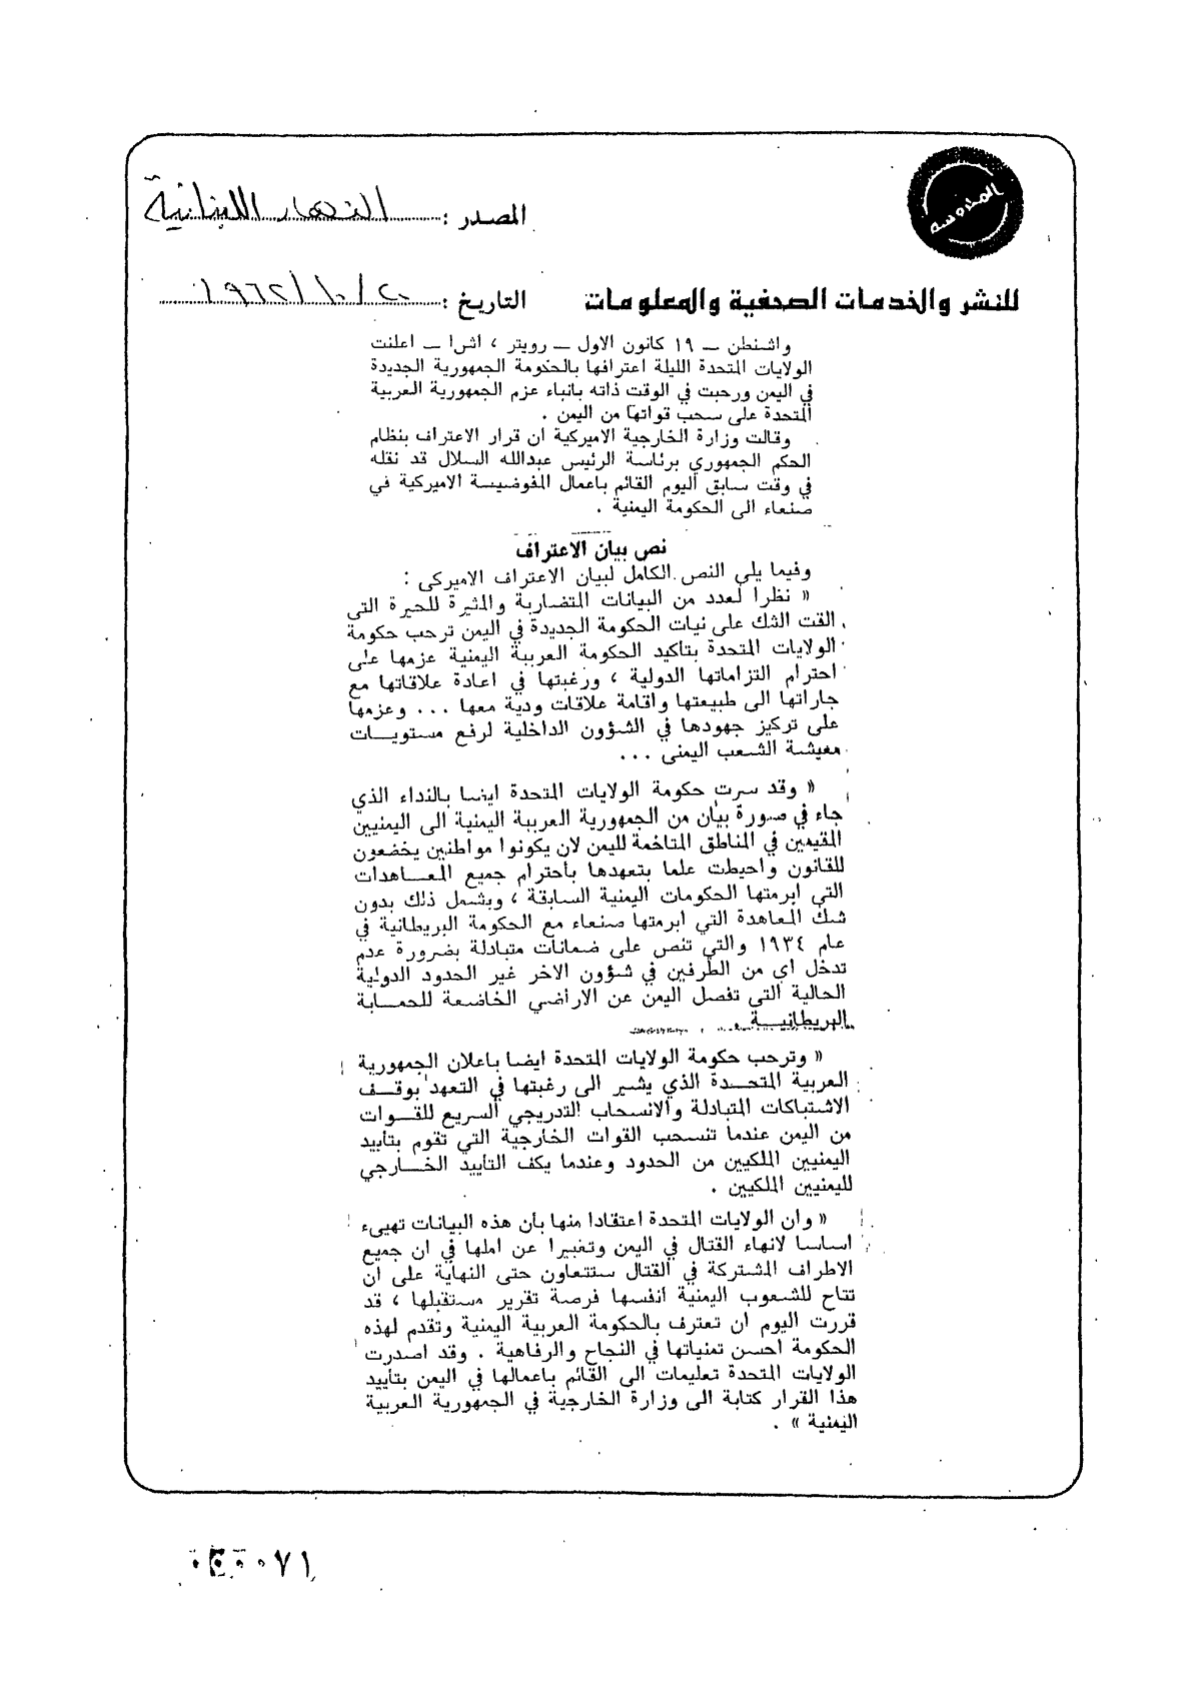 المصدر : النهار اللبنانية
للنشر والخدمات الصحفية والمعلومات
التاريخ : ٢٠/١٠/١٩٦٢
واشنطن — ١٩ كانون الاول — رويتر ، اشرا — اعلنت
الولايات المتحدة الليلة اعترافها بالحكومة الجمهورية الجديدة
في اليمن ورحبت في الوقت ذاته بانباء عزم الجمهورية العربية
المتحدة على سحب قواتها من اليمن .
وقالت وزارة الخارجية الاميركية ان قرار الاعتراف بنظام
الحكم الجمهوري برئاسة الرئيس عبدالله السلال قد نقله
في وقت سابق اليوم القائم باعمال المفوضيسة الاميركية في
صنعاء الى الحكومة اليمنية .
نص بيان الاعتراف
وفيما يلي النص الكامل لبيان الاعتراف الاميركى :
« نظرا لعدد من البيانات المتضاربة والمثيرة للحيرة التى
القت الشك على نيات الحكومة الجديدة في اليمن ترحب حكومة
الولايات المتحدة بتأكيد الحكومة العربية اليمنية عزمها على
احترام التزاماتها الدولية ، ورغبتها في اعادة علاقاتها مع
جاراتها الى طبيعتها واقامة علاقات ودية معها ... وعزمها
على تركيز جهودها في الشؤون الداخلية لرفع مستويـــات
معيشة الشعب اليمنى ...
« وقد سرت حكومة الولايات المتحدة ايضا بالنداء الذي
جاء في صورة بيان من الجمهورية العربية اليمنية الى اليمنيين
المقيمين في المناطق المتاخمة لليمن لان يكونوا مواطنين يخضعون
للقانون واحيطت علما بتعهدها باحترام جميع المعــاهدات
التي ابرمتها الحكومات اليمنية السابقة ، ويشمل ذلك بدون
شك المعاهدة التي ابرمتها صنعاء مع الحكومة البريطانية في
عام ١٩٣٤ والتي تنص على ضمانات متبادلة بضرورة عدم
تدخل اي من الطرفين في شؤون الاخر غير الحدود الدولية
الحالية التي تفصل اليمن عن الاراضي الخاضعة للحمــاية
البريطانيــة
« وترحب حكومة الولايات المتحدة ايضا باعلان الجمهورية
العربية المتحــدة الذي يشير الى رغبتها في التعهد بوقــف
الاشتباكات المتبادلة والانسحاب التدريجي السريع للقــوات
من اليمن عندما تنسحب القوات الخارجية التي تقوم بتأييد
اليمنيين الملكيين من الحدود وعندما يكف التأييد الخــارجي
لليمنيين الملكيين .
« وان الولايات المتحدة اعتقادا منها بأن هذه البيانات تهيىء
اساسا لانهاء القتال في اليمن وتعبيرا عن املها في ان جميع
الاطراف المشتركة في القتال ستتعاون حتى النهاية على ان
تتاح للشعوب اليمنية انفسها فرصة تقرير مستقبلها ، قد
قررت اليوم ان تعترف بالحكومة العربية اليمنية وتقدم لهذه
الحكومة احسن تمنياتها في النجاح والرفاهية . وقد اصدرت
الولايات المتحدة تعليمات الى القائم باعمالها في اليمن بتأييد
هذا القرار كتابة الى وزارة الخارجية في الجمهورية العربية
اليمنية » .